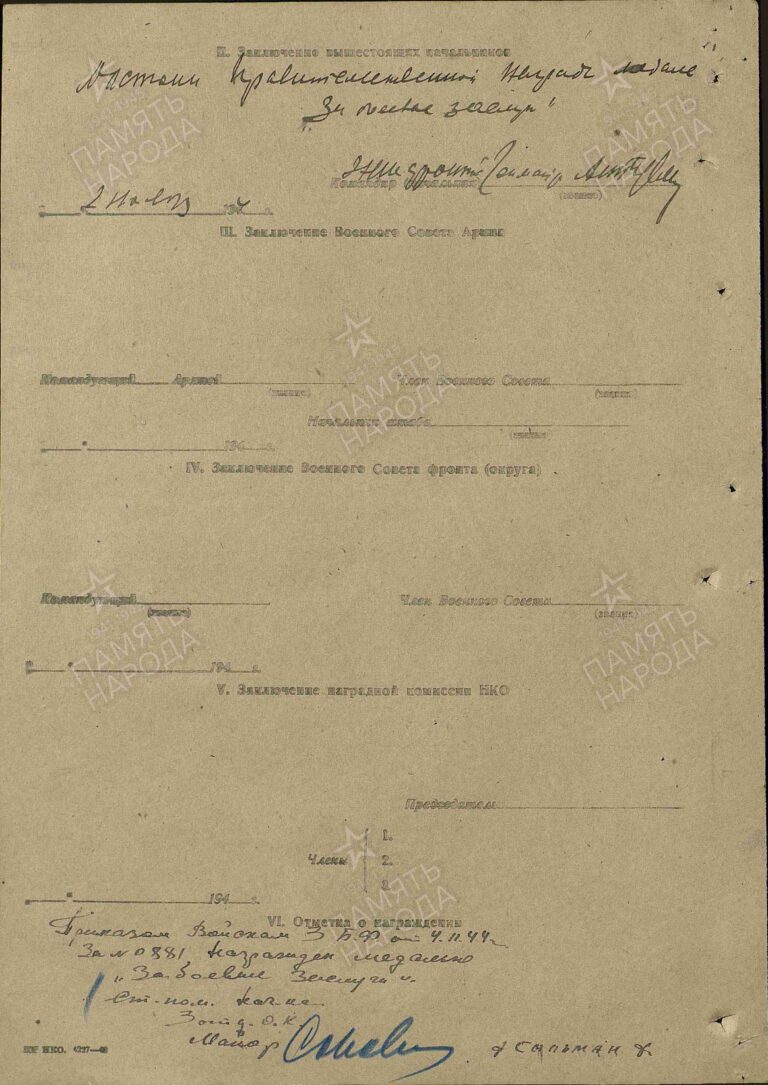 II. Заключение вышестоящих начальников
Достоин Правительственной награды медаль
"За боевые заслуги"
Командир (начальник)
(звание)
2 ноября 1944 г.
III. Заключение Военного Совета Армии
Командующий Армией Член Военного Совета
(звание) (звание)
Начальник штаба
(звание)
" " 194 г.
IV. Заключение Военного Совета фронта (округа)
Командующий Член Военного Совета
(звание) (звание)
" " 194 г.
V. Заключение наградной комиссии НКО
Председатель
1.
Члены 2.
3.
" " 194 г.
VI. Отметка о награждении
Приказом Войскам 3 БФ от 4.11.44 г.
За № 0881 награжден медалью
"За боевые Заслуги".
Ст. пом. нач-ка
3 отд. О.К.
Майор /Сальман/
ПАМЯТЬ НАРОДА
ПАМЯТЬ НАРОДА
1941-1945
ПАМЯТЬ НАРОДА
ПАМЯТЬ НАРОДА
ПАМЯТЬ НАРОДА
ПАМЯТЬ НАРОДА